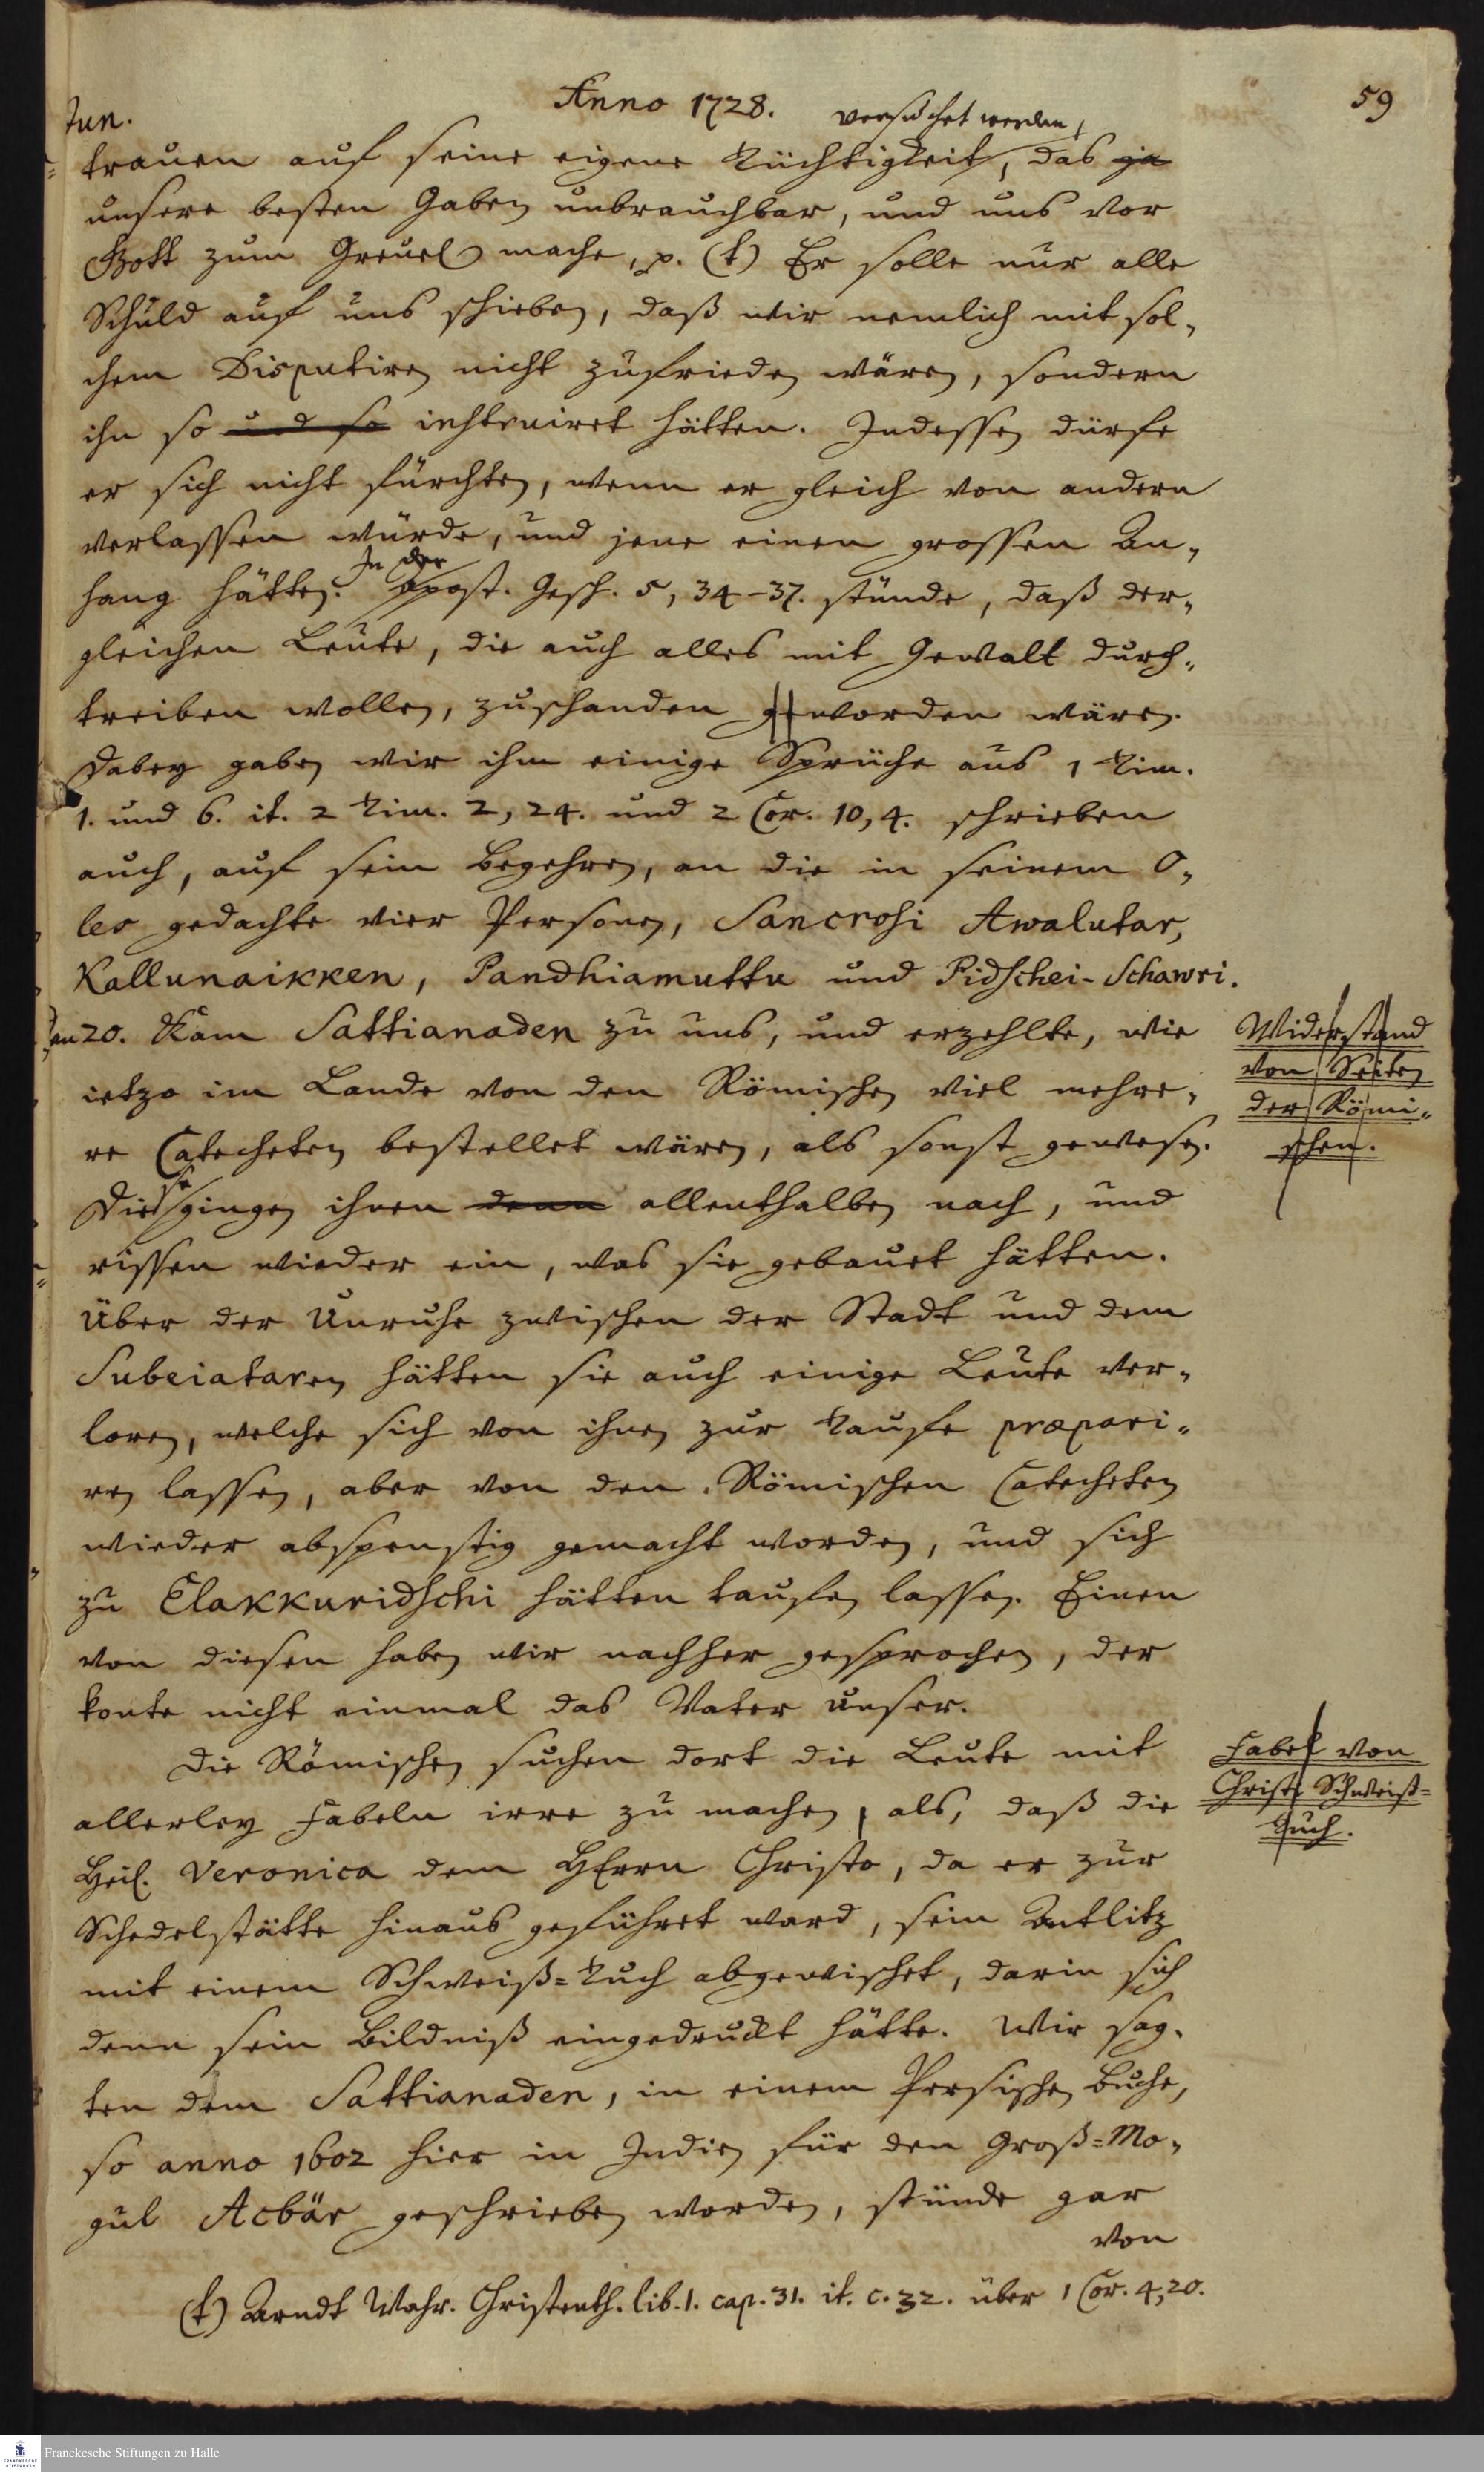 Anno 1728.
59
Jun.
versichert werden,
trauen auf seine eigene Tüchtigkeit, das ja
unsere besten Gaben unbrauchbar, und uns vor
Gott zum Greuel mache, p. (t) Er solle nur alle
Schuld auf uns schieben, daß wir nemlich mit sol„
chem Disputiren nicht zufrieden wären, sondern
ihn so und so instruiret hätten. Indessen dürfe
er sich nicht fürchten, wenn er gleich von andern
verlassen würde, und jene einen grossen An„
In der
hang hätten. Apost. Gesch. 5, 34-37. stünde, daß der„
gleichen Leute, die auch alles mit Gewalt durch„
treiben wollen, zuschanden geworden wären.
Dabey gaben wir ihm einige Sprüche aus 1 Tim.
1. und 6. it. 2 Tim. 2, 24. und 2 Cor. 10, 4. schrieben
auch, auf sein Begehren, an die in seinem O„
les gedachte vier Personen, Sancrosi Awalutar,
Kallunaikken, Pandhiamuttu und Pidschei-Schawri.
Den 20. Kam Sattianaden zu uns, und erzehlte, wie
ietzo im Lande von den Römischen viel mehre„
re Catecheten bestellet wären, als sonst gewesen.
Diese gingen ihnen denn allenthalben nach, und
rissen wieder ein, was sie gebauet hätten.
Über der Unruhe zwischen der Stadt und dem
Subeiataren hätten sie auch einige Leute ver„
loren, welche sich von ihnen zur Taufe præpari„
ren lassen, aber von den Römischen Catecheten
wieder abspenstig gemacht worden, und sich
zu Elakkuridschi hätten taufen lassen. Einen
von diesen haben wir nachher gesprochen, der
konte nicht einmal das Vater unser.
Widerstand
von Seiten
der Römi„
schen.
Die Römischen suchen dort die Leute mit
allerley Fabeln irre zu machen, als, daß die
Heil. Veronica dem HErrn Christo, da er zur
Schedelstätte hinaus geführet ward, sein Antlitz
mit einem Schweiß=Tuch abgewischet, darin sich
denn sein Bildniß eingedruckt hätte. Wir sag„
ten dem Sattianaden, in einem Persischen Buche,
so anno 1602 hier in Indien für den Groß=Mo„
gul Acbär geschrieben worden, stünde gar
von
Fabel von
Christi Schweiß=
Tuch.
(t) Arndt Wahr. Christenth. lib. 1. cap. 31. it. c. 32. über 1 Cor. 4, 20.
Franckesche Stiftungen zu Halle